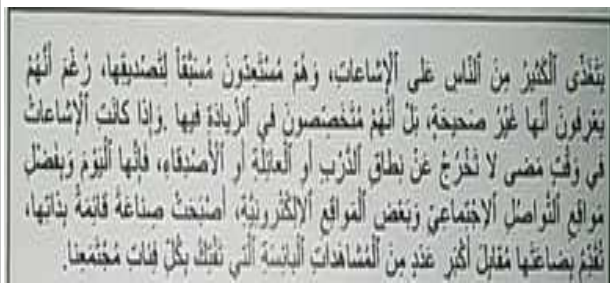 يَتَغَذَّى ٱلْكَثيرُ مِنَ ٱلنّاسِ عَلى ٱلْإِشاعاتِ، وَهُمْ مُسْتَعِدّونَ مُسْبَقاً لِتَصْديقِها، رُغْمَ أَنَّهُمْ
يَعْرِفونَ أَنَّها غَيْرُ صَحيحَةٍ، بَلْ أَنَّهُمْ مُتَخَصِّصونَ في ٱلزِّيادَةِ فيها. وَإِذا كانَتِ ٱلْإِشاعاتُ
في وَقْتٍ مَضى لا تَخْرُجُ عَنْ نِطاقِ ٱلدَّرْبِ أَوِ ٱلْعائِلَةِ أَوِ ٱلْأَصْدِقاءِ، فَإِنَّها ٱلْيَوْمَ وَبِفَضْلِ
مَواقِعِ ٱلتَّواصُلِ ٱلِاجْتِماعِيِّ وَبَعْضِ ٱلْمَواقِعِ ٱلْإِلِكْتْرونِيَّةِ، أَصْبَحَتْ صِناعَةً قائِمَةً بِذاتِها،
تُقَدِّمُ بِضاعَتَها مُقابِلَ أَكْبَرِ عَدَدٍ مِنَ ٱلْمُشاهَداتِ ٱلْبائِسَةِ ٱلَّتي تَفْتِكُ بِكُلِّ فِئاتِ مُجْتَمَعِنا.